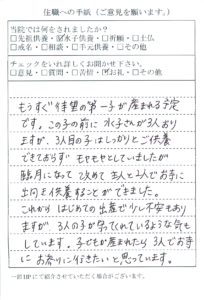 住職への手紙（ご意見を願います。）
当院では何をされましたか？
□先祖供養・☑水子供養・□祈願・□土仏
□戒名・□相談・□千元供養・□その他
チェックをいれ詳しくお聞かせ下さい。
□意見・□質問・□苦情・☑お礼・□その他
もうすぐ待望の第一子が産まれる予定
です。この子の前に水子さんが3人おり
ますが、3人目の子はしっかりとご供養
できておらず モヤモヤとしていましたが
臨月になって 改めて主人と2人でお寺に
出向き供養することができました。
これから はじめての出産で少し不安もあり
ますが、3人の子が守ってくれているような気も
しています。子どもが産まれたら 3人でお寺
に お参りに行きたいと思っています。
一部HPにて紹介させていただく場合がございます。